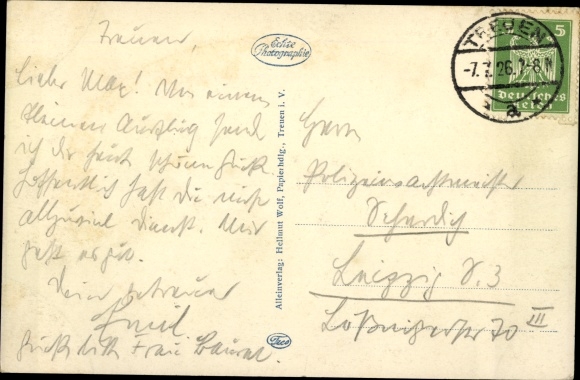 Treuen,
Lieber Max! Von einem
kleinen Ausflug send
ich dir hier schöne Grüße
Hoffentlich hast du nicht
allzuviel Dienst. Mir
geht es gut.
Dein getreuer
Emil
Grüße bitte Frau
Echte
Photographie
Alleinverlag: Hellmut Wolf, Papierhdlg., Treuen i. V.
TREUEN
-7.7.26.7-8 N
a
5
Deutsches
Reich
Herrn
Polizeiwachtmeister
Leipzig S.3
Lößnigerstr 70 III